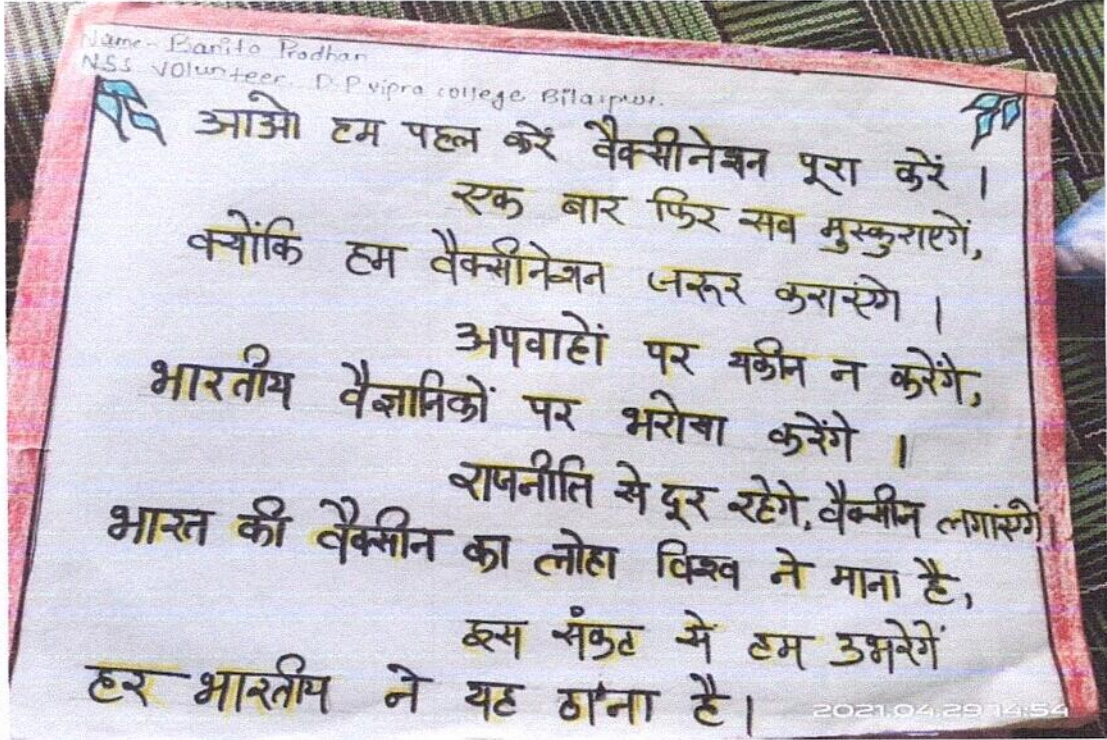 Name- Banita Pradhan
NSS Volunteer. D.P vipra college Bilaspur.
आओ हम पहल करें वैक्सीनेशन पूरा करें ।
एक बार फिर सब मुस्कुराएगें,
क्योंकि हम वैक्सीनेशन जरूर कराएंगे ।
अपवाहों पर यकीन न करेंगे,
भारतीय वैज्ञानिकों पर भरोसा करेंगे ।
राजनीति से दूर रहेगे, वैक्सीन लगाएंगे।
भारत की वैक्सीन का लोहा विश्व ने माना है,
इस संकट से हम उभरेगें
हर भारतीय ने यह ठाना है।
2021.04.29 14:54